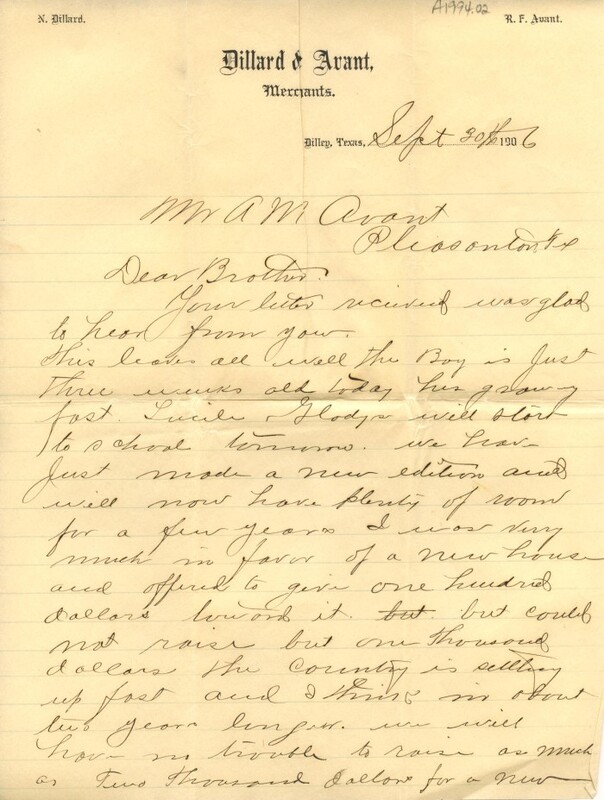 A1994.02
N. Dillard. R. F. Avant.
Dillard & Avant,
Merchants.
Dilley, Texas, Sept 30th 1906
Mr A M Avant
Pleasanton Tx
Dear Brother.
Your letter recieved was glad
to hear from you.
This leaves all well the Boy is Just
three weeks old today his growing
fast. Lucile & Gladys will start
to school tomorrow. we have
Just made a new edition and
will now have plenty of room
for a few years I was very
much in favor of a new house
and offered to give one hundred
dollars toward it but but could
not raise but one thousand
dollars the country is settling
up fast and I think in about
two years longer we will
have no trouble to raise as much
as Two thousand dollars for a new